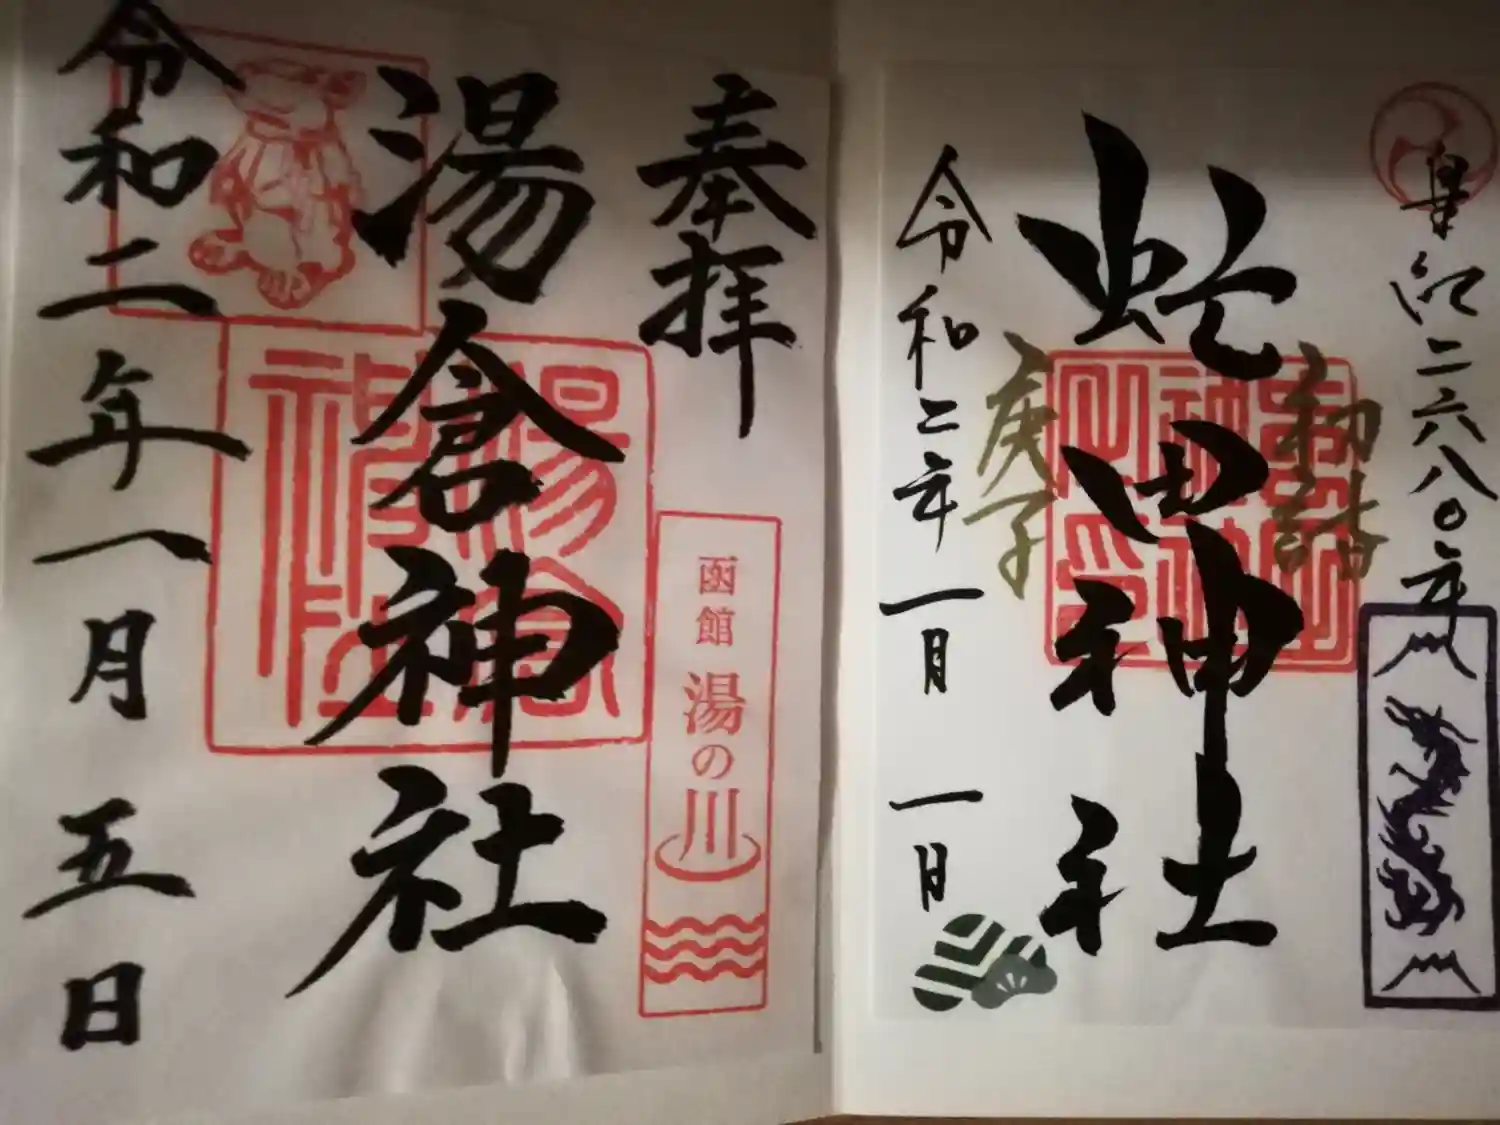 皇紀二六八〇年
初詣
虻田神社
庚子
令和二年一月一日
奉拝
函館 湯の川
湯倉神社
令和二年一月五日